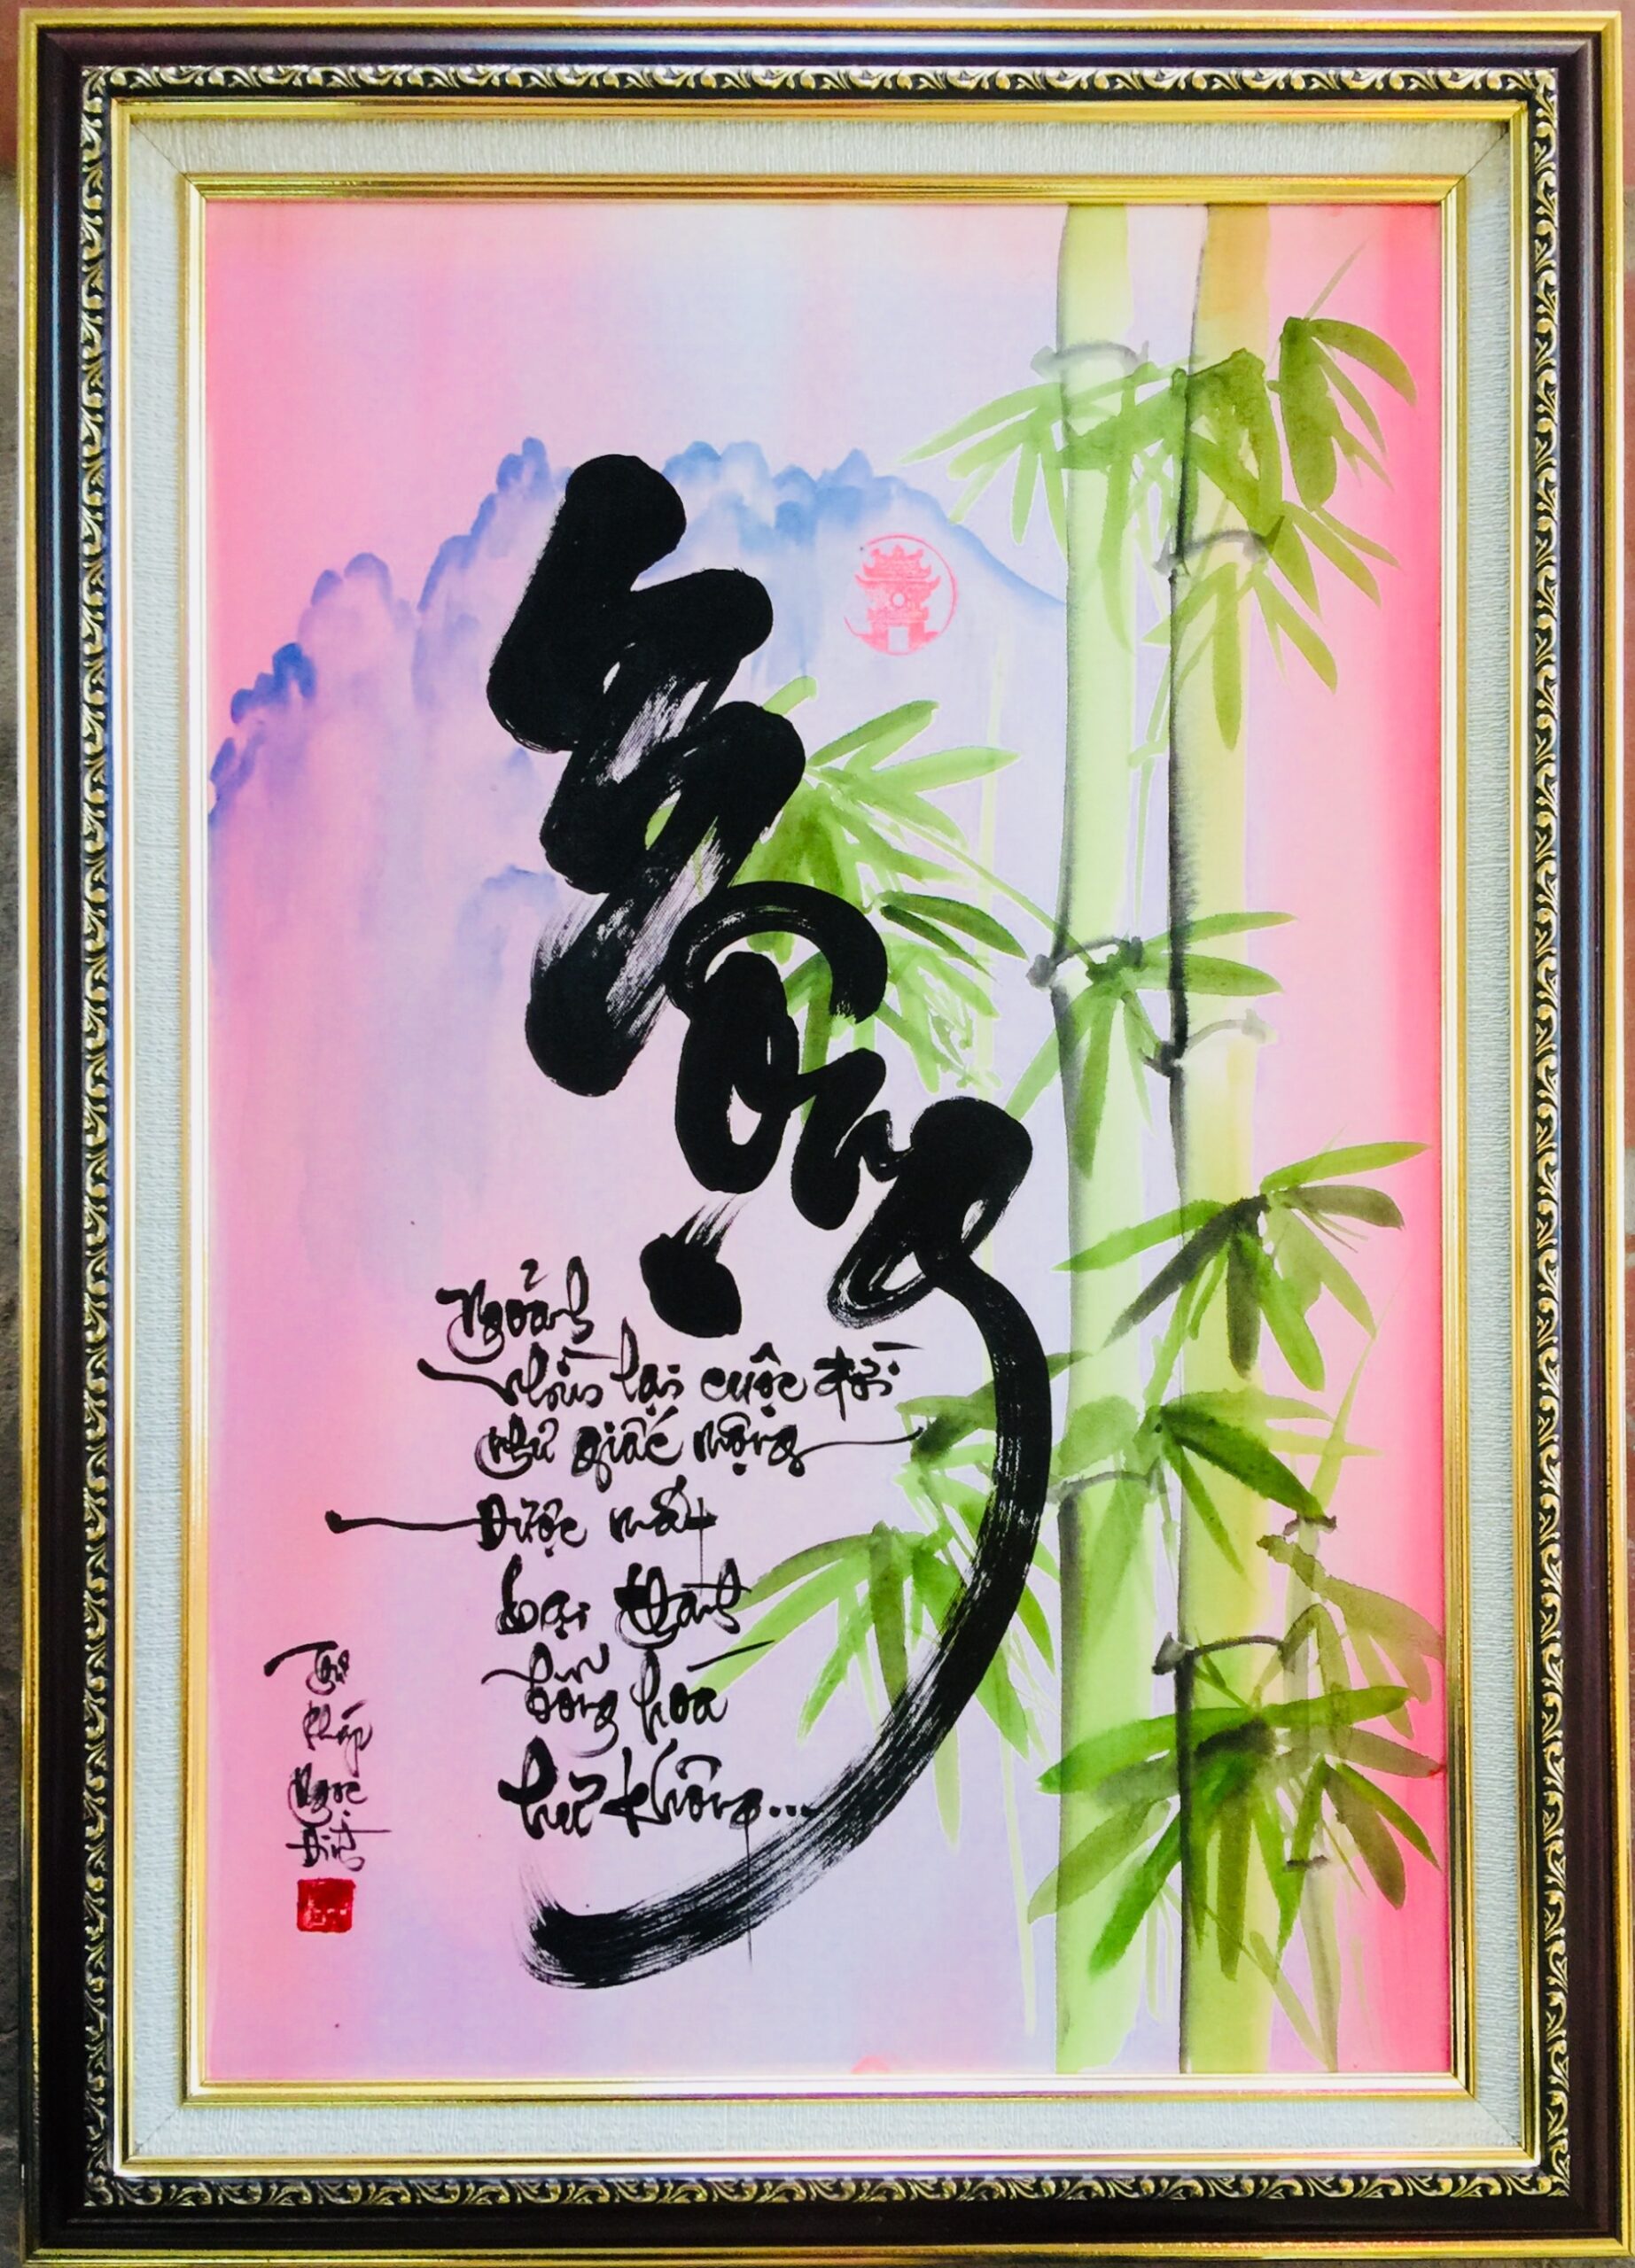 Mộng
Ngoảnh
nhìn lại cuộc đời
như giấc mộng
Được mất
bại thành
bỗng hóa
hư không...
Thư
Pháp
Ngọc
Đính